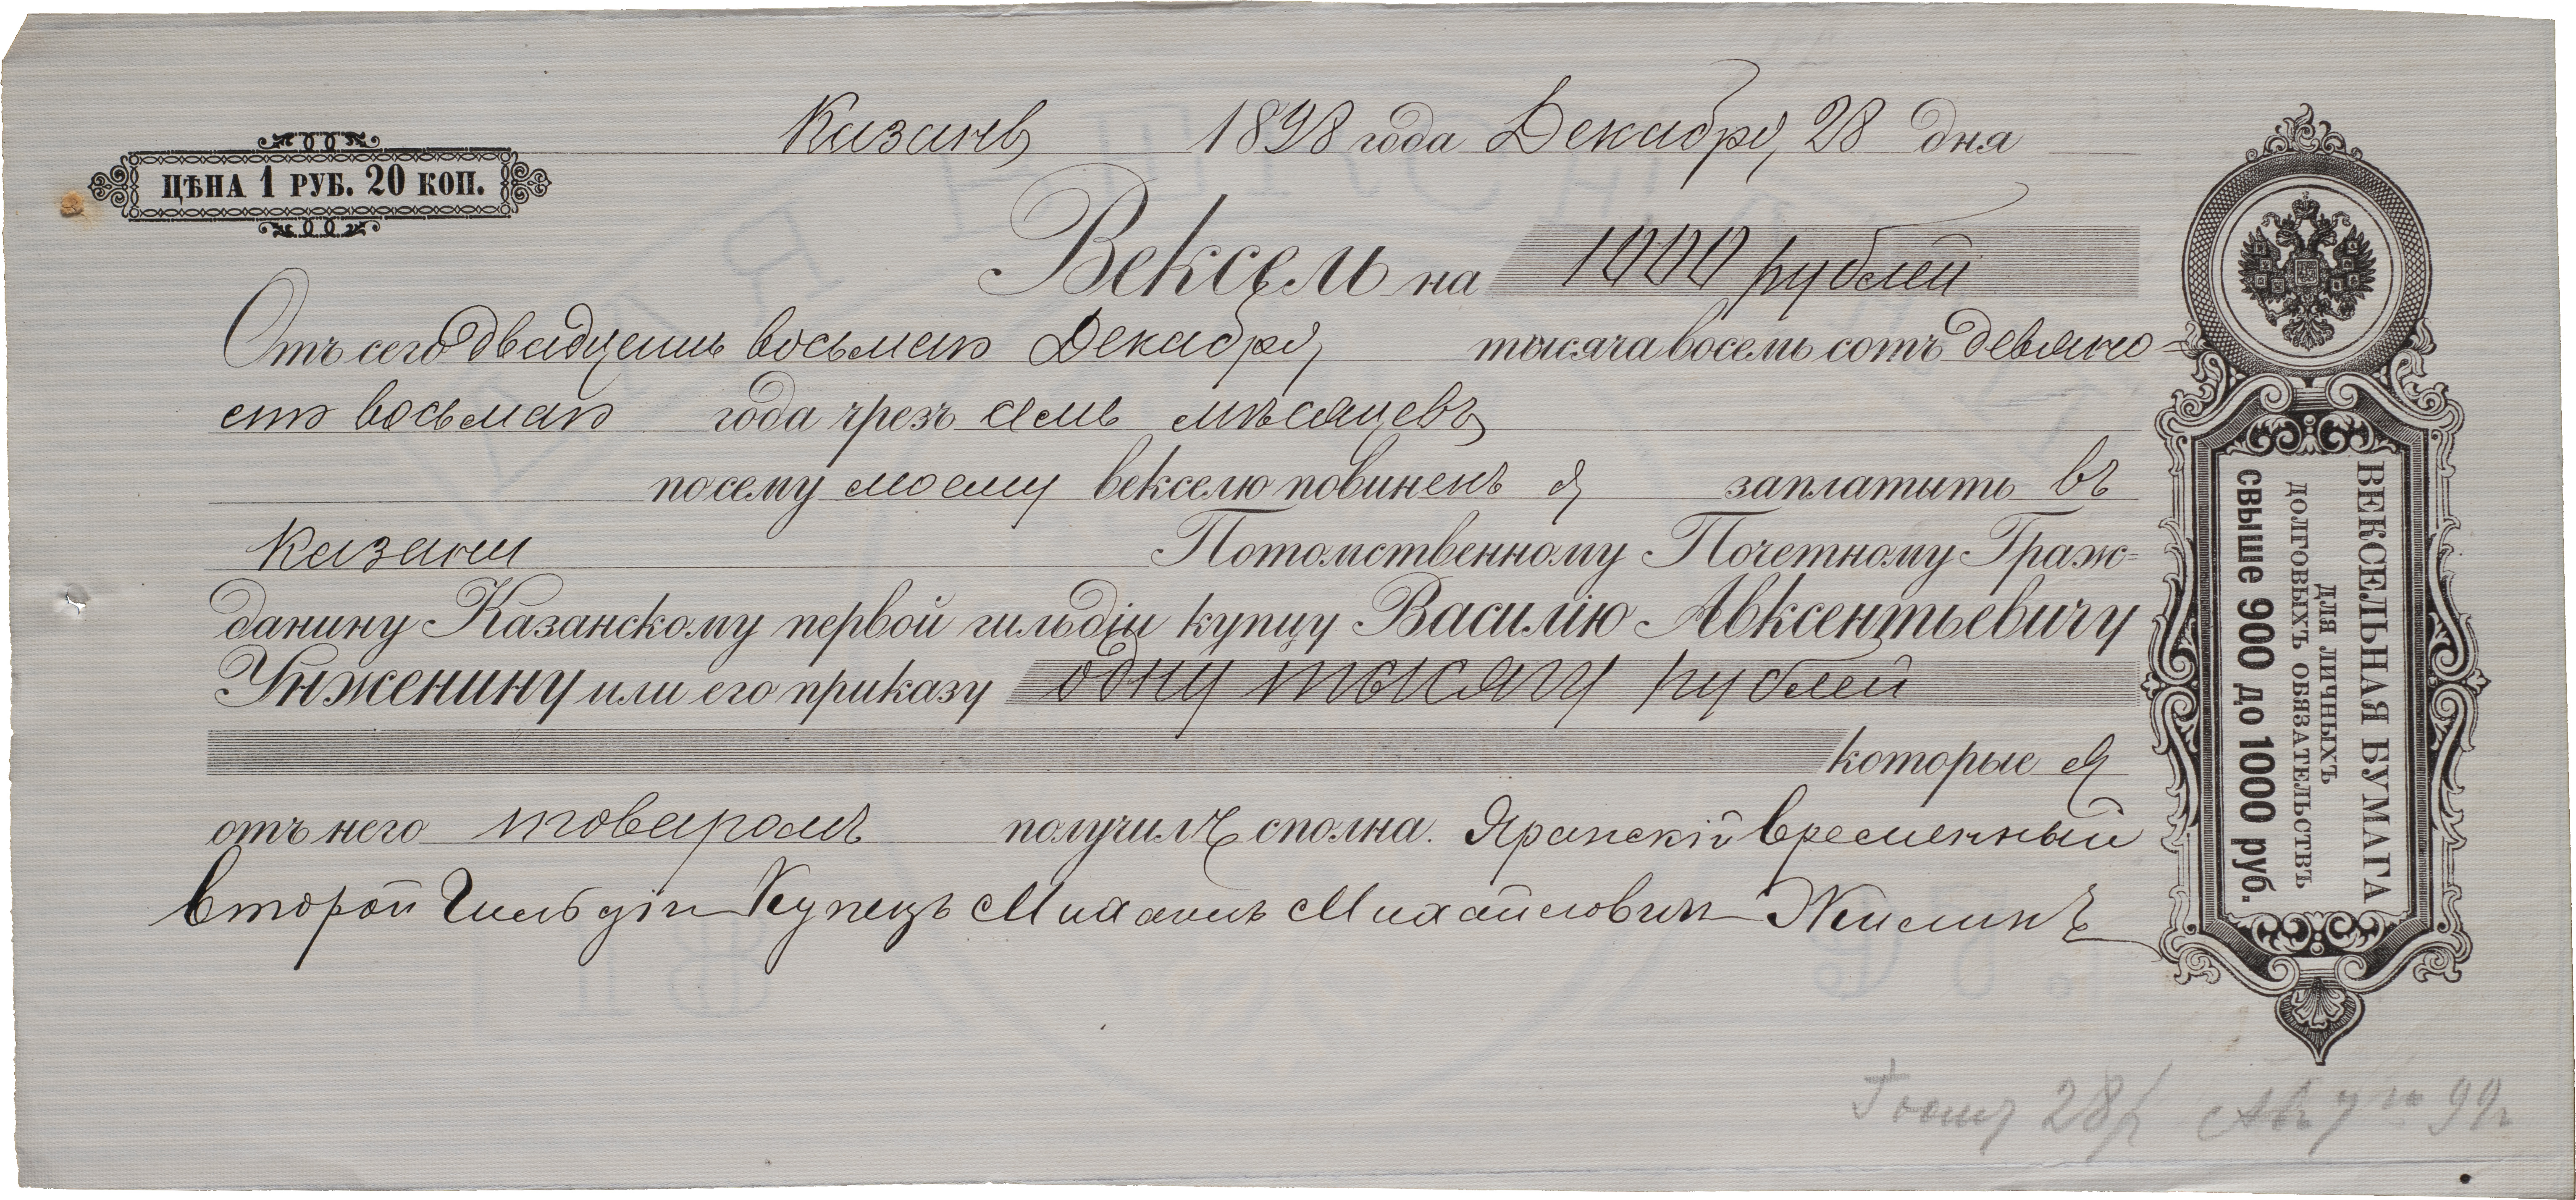 Казань 1898 года Декабря 28 дня
ЦѢНА 1 РУБ. 20 КОП.
Вексель на 1000 рублей
Отъ сего двадцать восьмаго Декабря тысяча восемь сотъ девяно=
сто восьмаго года чрезъ семь мѣсяцевъ
по сему моему векселю повиненъ я заплатить въ
Казани Потомственному Почетному Граж=
данину Казанскому первой гильдіи купцу Василію Авксентьевичу
Унженину или его приказу одну тысячу рублей
которые я
отъ него товаромъ получилъ сполна. Яранскій временный
второй Гильдіи Купецъ Михаилъ Михайловичъ Жилинъ
ВЕКСЕЛЬНАЯ БУМАГА
ДЛЯ ЛИЧНЫХЪ
ДОЛГОВЫХЪ ОБЯЗАТЕЛЬСТВЪ
СВЫШЕ 900 ДО 1000 РУБ.
28 99